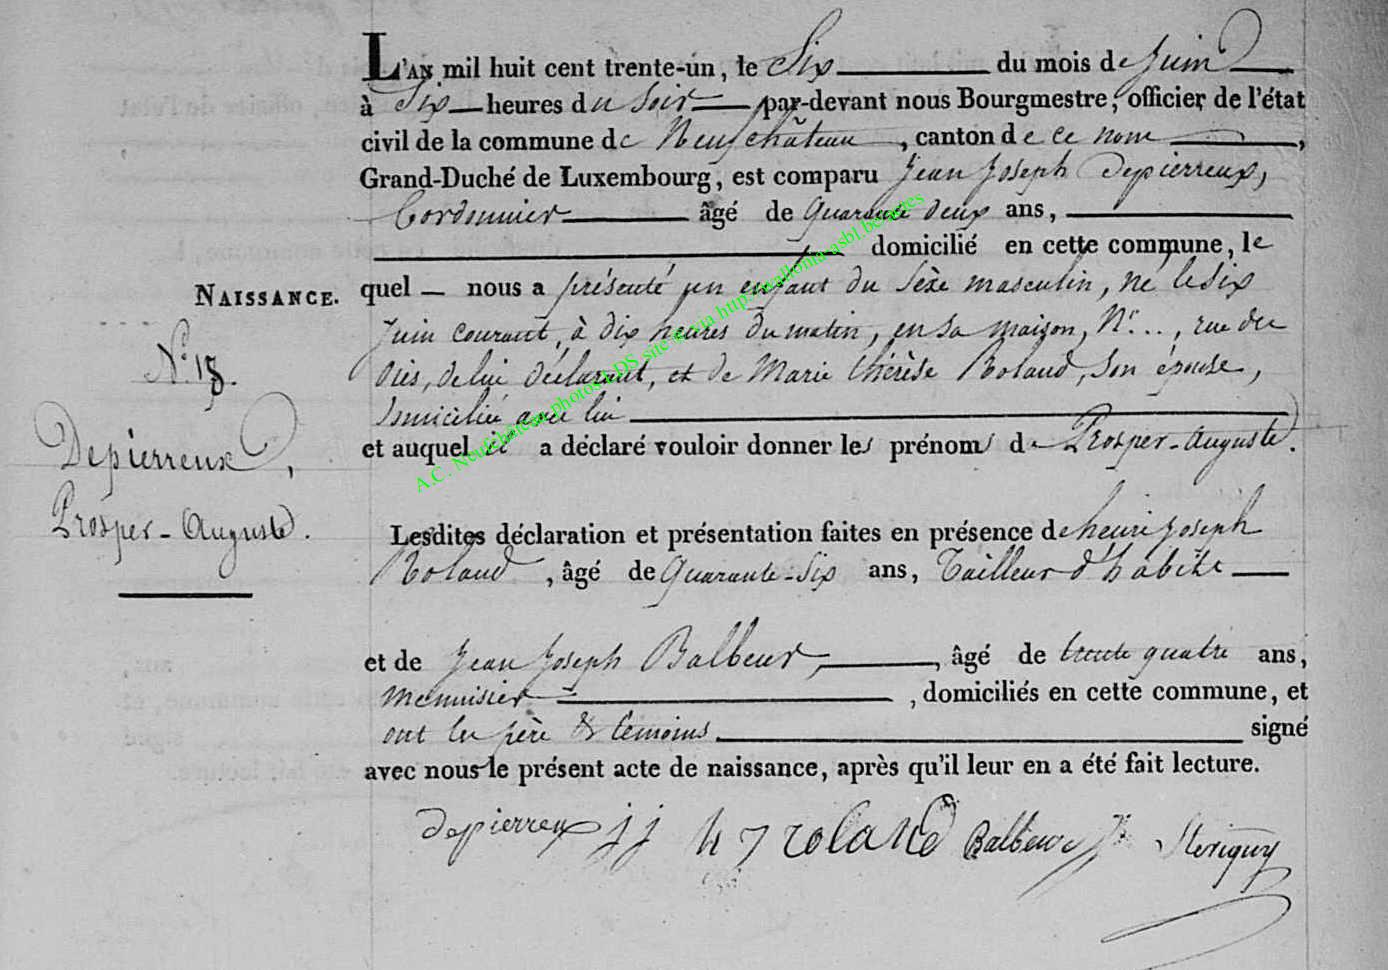 L'AN mil huit cent trente-un, le Six du mois de Juin
à Six heures du soir par-devant nous Bourgmestre, officier de l'état
civil de la commune de Neufchâteau, canton de ce nom,
Grand-Duché de Luxembourg, est comparu Jean Joseph Depierreux,
Cordonnier âgé de Quarante deux ans,
domicilié en cette commune, le
NAISSANCE.
quel nous a présenté un enfant du sexe masculin, né le six
Juin courant, à dix heures du matin, en sa maison, N° .., rue du
N° 18.
de lui déclarant, et de Marie thérèse Roland, son épouse,
domiciliée avec lui
et auquel il a déclaré vouloir donner les prénoms de Prosper-Auguste.
Depierreux,
Prosper-Auguste.
Lesdites déclaration et présentation faites en présence de henri joseph
Roland, âgé de Quarante-Six ans, Tailleur d'habits
et de Jean Joseph Balbeur, âgé de trente quatre ans,
menuisier, domiciliés en cette commune, et
ont les père & témoins signé
avec nous le présent acte de naissance, après qu'il leur en a été fait lecture.
depierreux j j h j roland Balbeur
A.C. Neufchâteau photos LDS site via http wallonia-asbl.be/actes